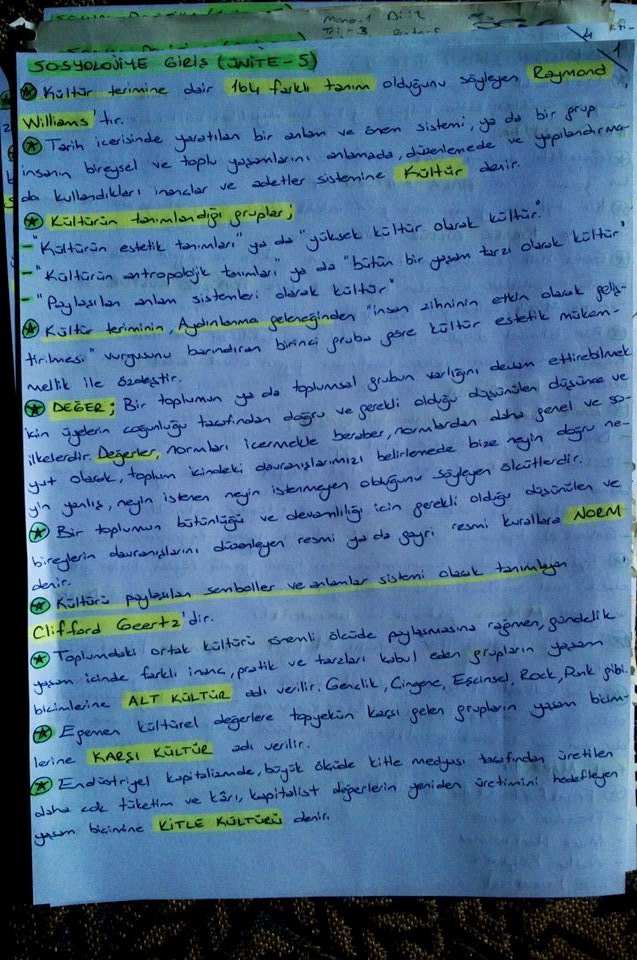 SOSYOLOJİYE GİRİŞ (ÜNİTE-5)
1
Kültür terimine dair 164 farklı tanım olduğunu söyleyen Raymond
Williams'tır.
Tarih içerisinde yaratılan bir anlam ve önem sistemi, ya da bir grup
insanın bireysel ve toplu yaşamlarını anlamada, düzenlemede ve yapılandırma-
da kullandıkları inançlar ve adetler sistemine Kültür denir.
Kültürün tanımlandığı gruplar;
- "Kültürün estetik tanımları" ya da "yüksek kültür olarak kültür."
- "Kültürün antropolojik tanımları" ya da "bütün bir yaşam tarzı olarak kültür"
- "Paylaşılan anlam sistemleri olarak kültür"
Kültür teriminin, Aydınlanma geleneğinden "insan zihninin etkin olarak geliş-
tirilmesi" vurgusunu barındıran birinci gruba göre kültür estetik mükem-
mellik ile özdeştir.
DEĞER; Bir toplumun ya da toplumsal grubun varlığını devam ettirebilmek
için üyelerin çoğunluğu tarafından doğru ve gerekli olduğu düşünülen düşünce ve
ilkelerdir. Değerler, normları içermekle beraber, normlardan daha genel ve so-
yut olarak, toplum içindeki davranışlarımızı belirlemede bize neyin doğru ne-
yin yanlış, neyin istenen neyin istenmeyen olduğunu söyleyen ölçütlerdir.
Bir toplumun bütünlüğü ve devamlılığı için gerekli olduğu düşünülen ve
bireylerin davranışlarını düzenleyen resmi ya da gayri resmi kurallara NORM
denir.
Kültürü paylaşılan semboller ve anlamlar sistemi olarak tanımlayan
Clifford Geertz'dir.
Toplumdaki ortak kültürü önemli ölçüde paylaşmasına rağmen, gündelik
yaşam içinde farklı inanç, pratik ve tarzları kabul eden grupların yaşam
biçimlerine ALT KÜLTÜR adı verilir. Gençlik, Çingene, Eşcinsel, Rock, Punk gibi.
Egemen kültürel değerlere topyekün karşı gelen grupların yaşam biçim-
lerine KARŞI KÜLTÜR adı verilir.
Endüstriyel kapitalizmde, büyük ölçüde kitle medyası tarafından üretilen
daha çok tüketim ve kârı, kapitalist değerlerin yeniden üretimini hedefleyen
yaşam biçimine KİTLE KÜLTÜRÜ denir.